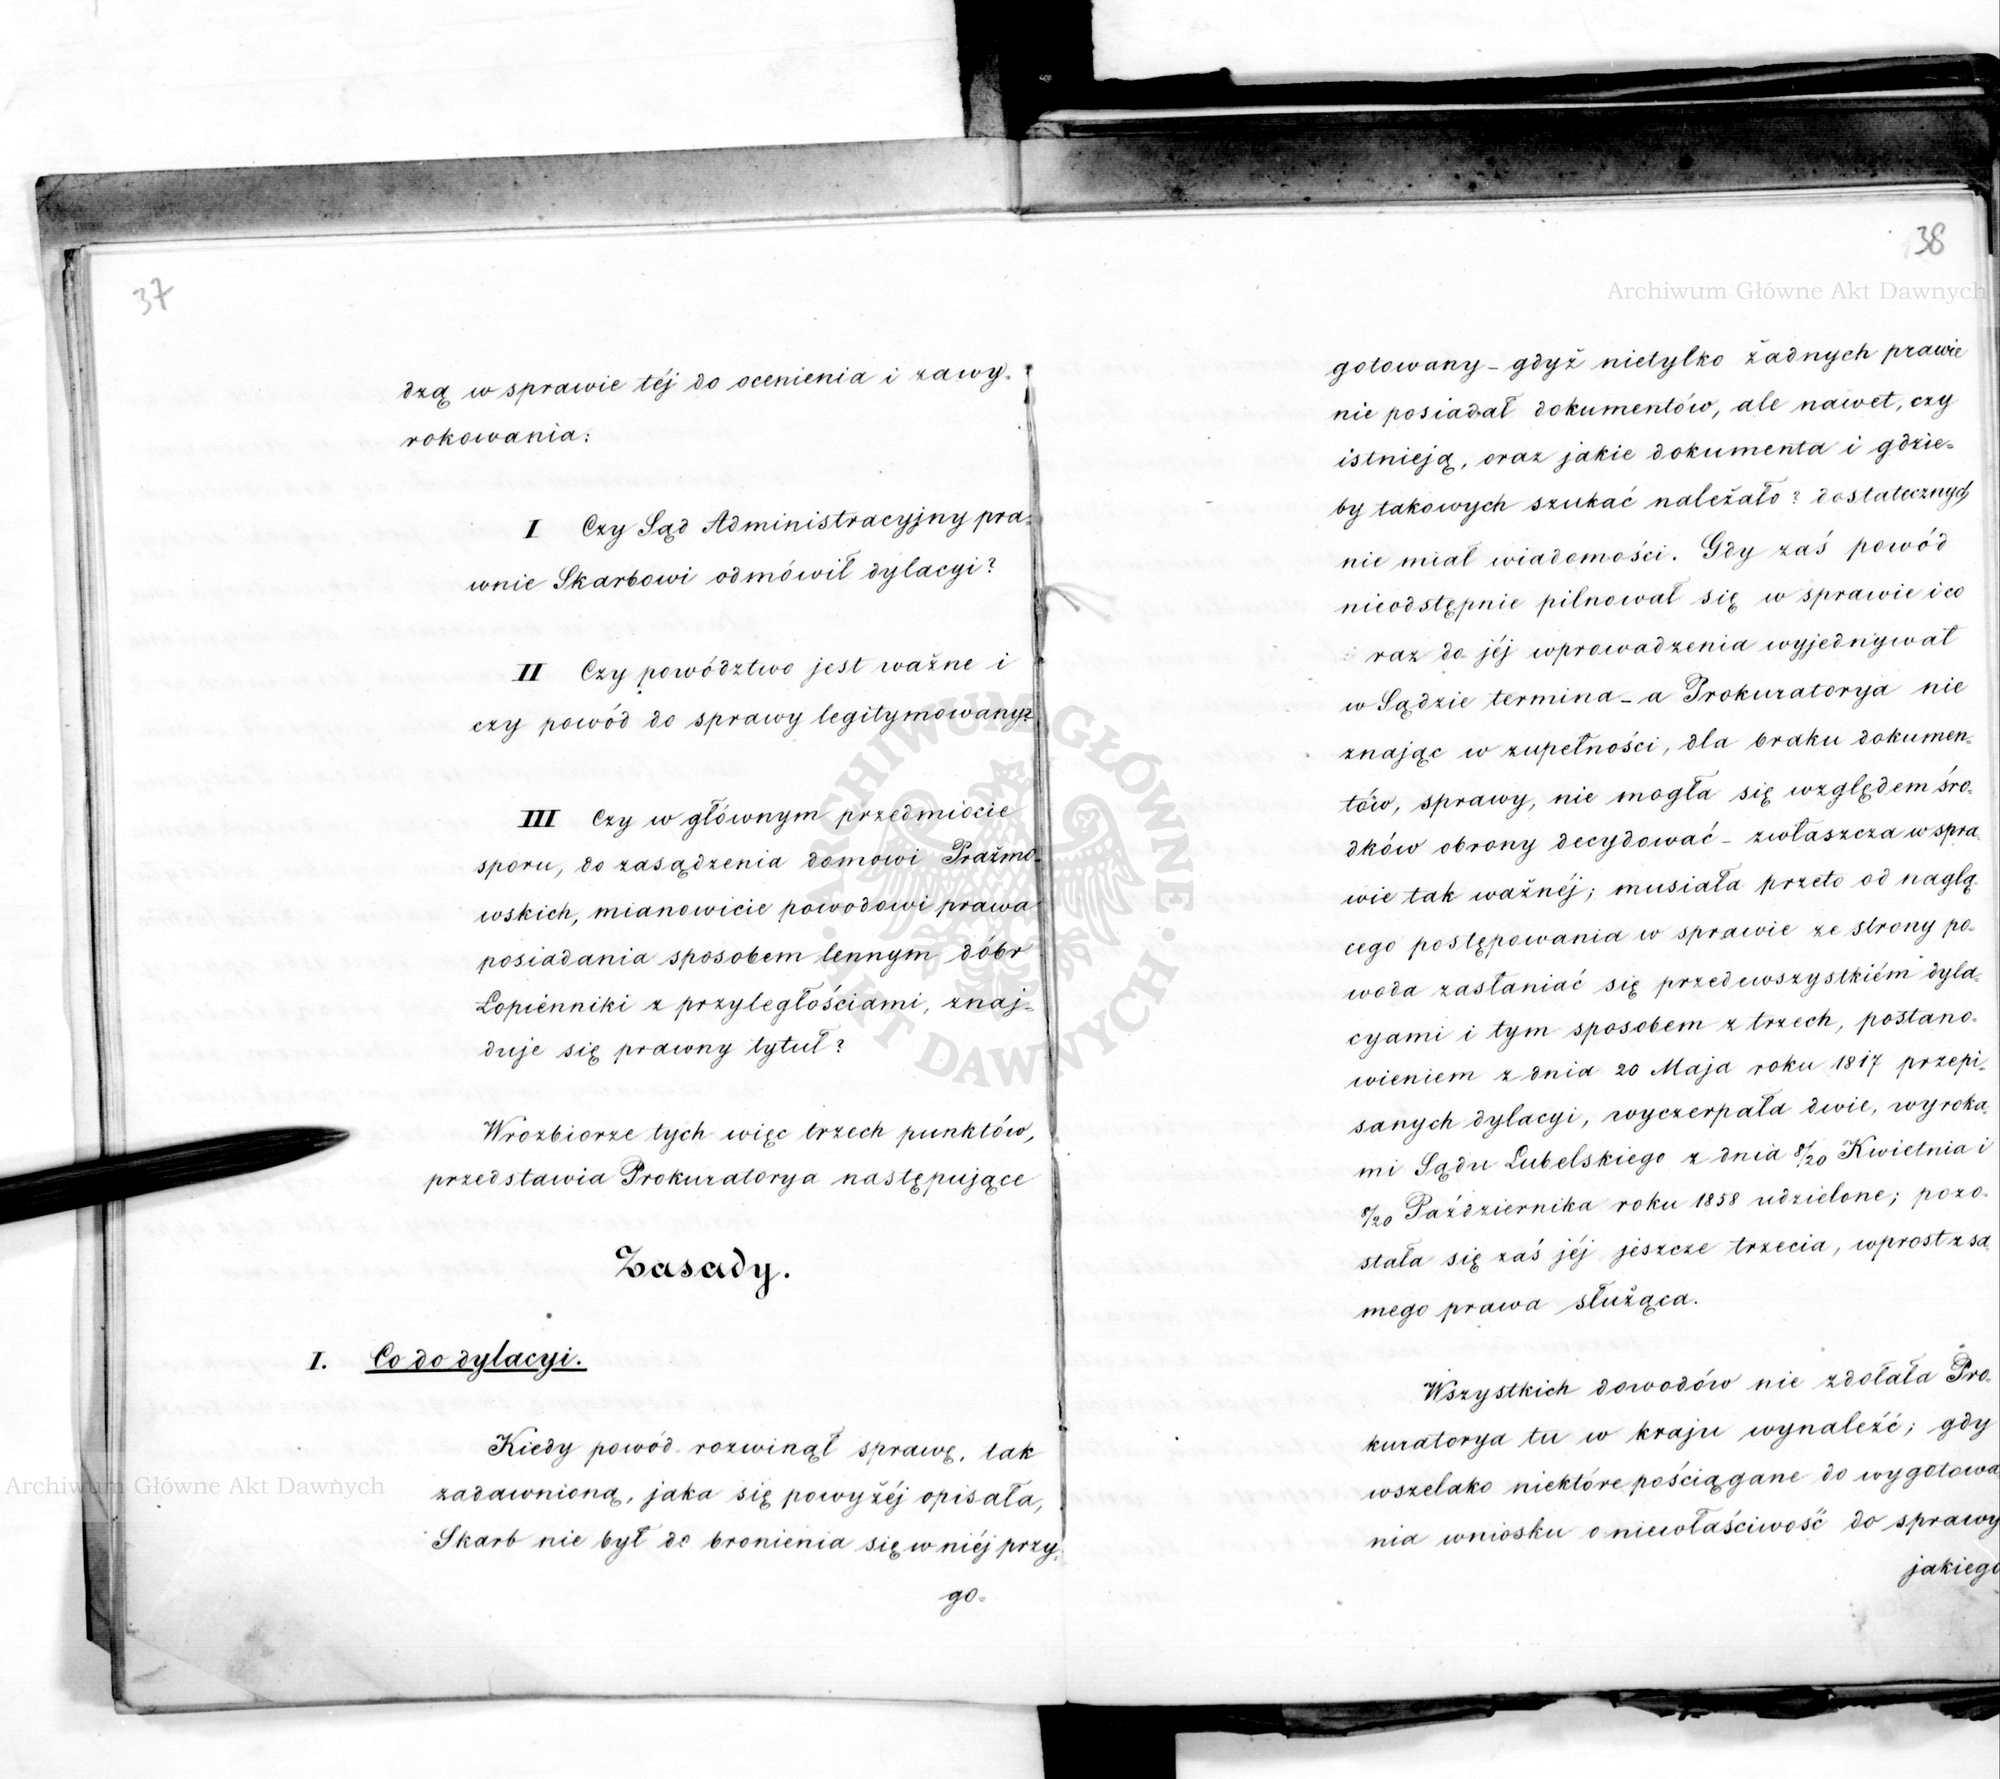 37
dzą w sprawie téj do ocenienia i zawy-
rokowania:
I Czy Sąd Administracyjny pra-
wnie Skarbowi odmówił dylacyi?
II Czy powództwo jest ważne i
czy powód do sprawy legitymowany?
III Czy w głównym przedmiocie
sporu, do zasądzenia domowi Prażmo-
wskich, mianowicie powodowi prawa
posiadania sposobem lennym dóbr
Łopienniki z przyległościami, znaj-
duje się prawny tytuł?
W rozbiorze tych więc trzech punktów,
przedstawia Prokuratorya następujące
Zasady.
I. Co do dylacyi.
Kiedy powód rozwinął sprawę, tak
zadawnioną, jaka się powyżéj opisała,
Skarb nie był do bronienia się w niéj przy-
go-
38
gotowany - gdyż nietylko żadnych prawie
nie posiadał dokumentów, ale nawet, czy
istnieją, oraz jakie dokumenta i gdzie-
by takowych szukać należało? dostatecznych
nie miał wiadomości. Gdy zaś powód
nieodstępnie pilnował się w sprawie i co
raz do jéj wprowadzenia wyjednywał
w Sądzie termina - a Prokuratorya nie
znając w zupełności, dla braku dokumen-
tów, sprawy, nie mogła się względem śro-
dków obrony decydować - zwłaszcza w spra-
wie tak ważnéj; musiała przeto od naglą-
cego postępowania w sprawie ze strony po-
woda zasłaniać się przedewszystkiém dyla-
cyami i tym sposobem z trzech, postano-
wieniem z dnia 20 Maja roku 1817 przepi-
sanych dylacyi, wyczerpała dwie, wyroka-
mi Sądu Lubelskiego z dnia 8/20 Kwietnia i
8/20 Października roku 1858 udzielone; pozo-
stała się zaś jéj jeszcze trzecia, wprost z sa
mego prawa służąca.
Wszystkich dowodów nie zdołała Pro-
kuratorya tu w kraju wynaleźć; gdy
wszelako niektóre pościągane do wygotowa
nia wniosku o niewłaściwość do sprawy
jakiego
Archiwum Główne Akt Dawnych
Archiwum Główne Akt Dawnych
ARCHIWUM GŁÓWNE AKT DAWNYCH